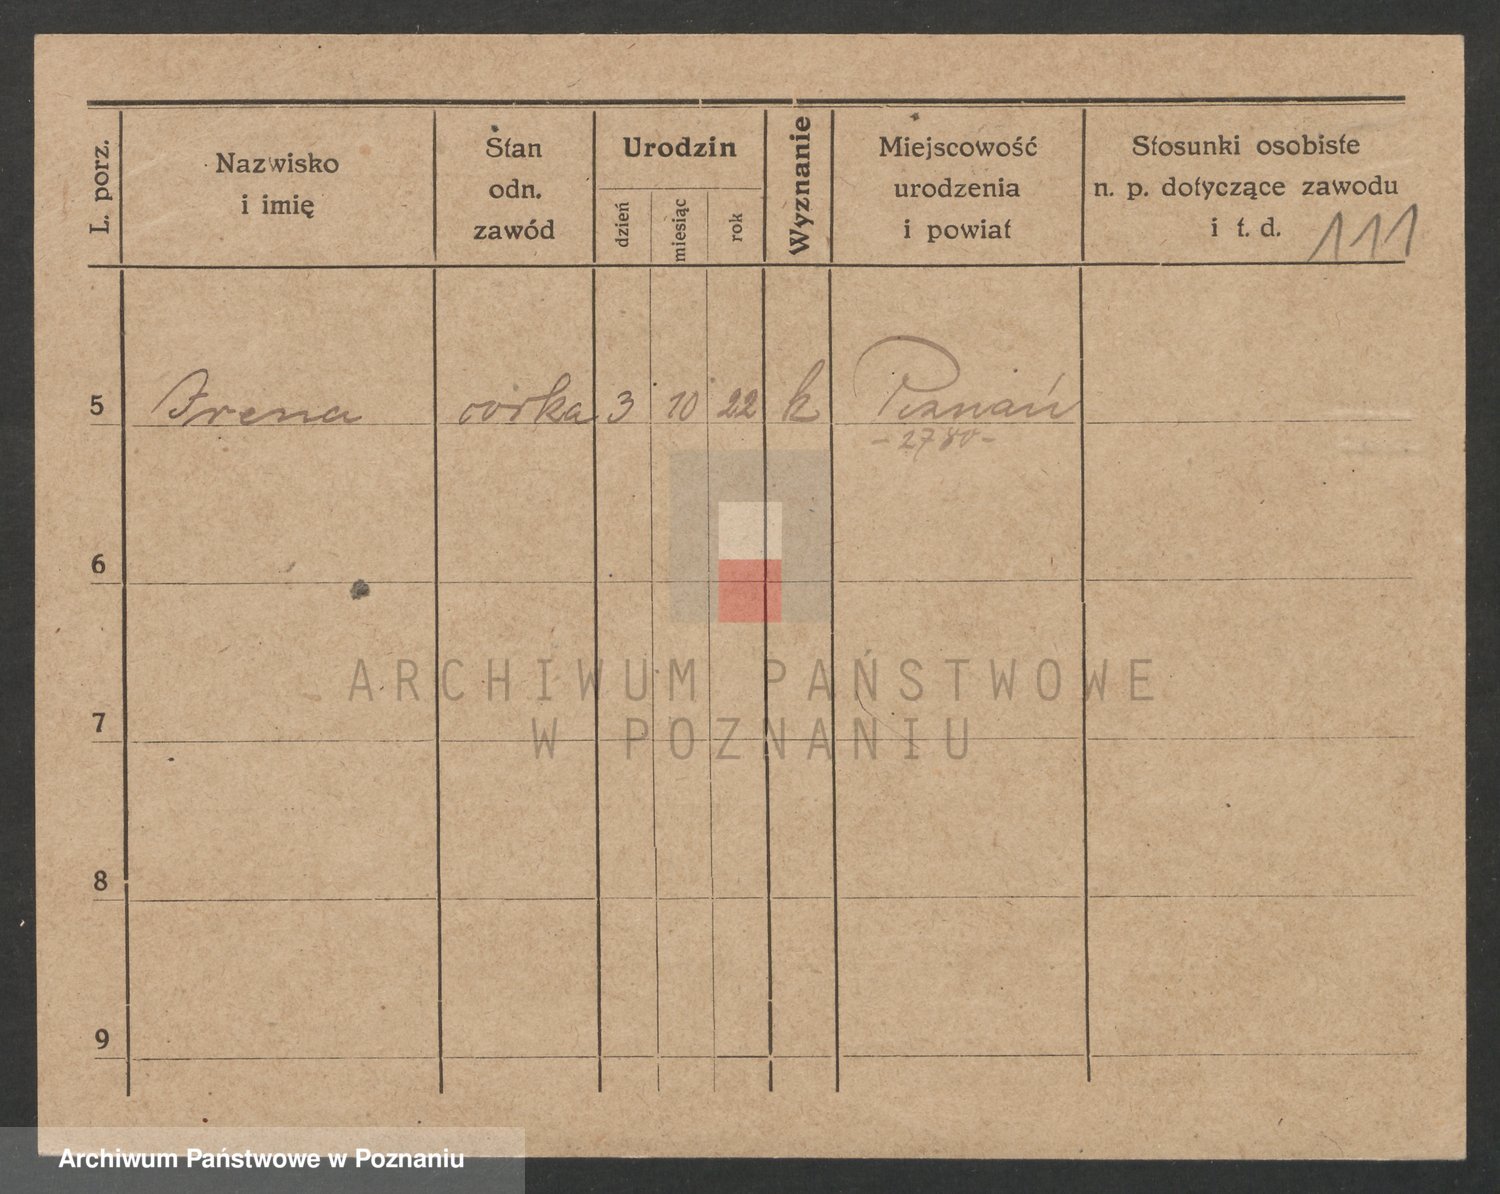 L. porz.
Nazwisko
i imię
Stan
odn.
zawód
Urodzin
dzień
miesiąc
rok
Wyznanie
Miejscowość
urodzenia
i powiat
Stosunki osobiste
n. p. dotyczące zawodu
i t. d.
111
5 Irena córka 3 10 22 k Poznań
6
7
8
9
ARCHIWUM PAŃSTWOWE
W POZNANIU
Archiwum Państwowe w Poznaniu